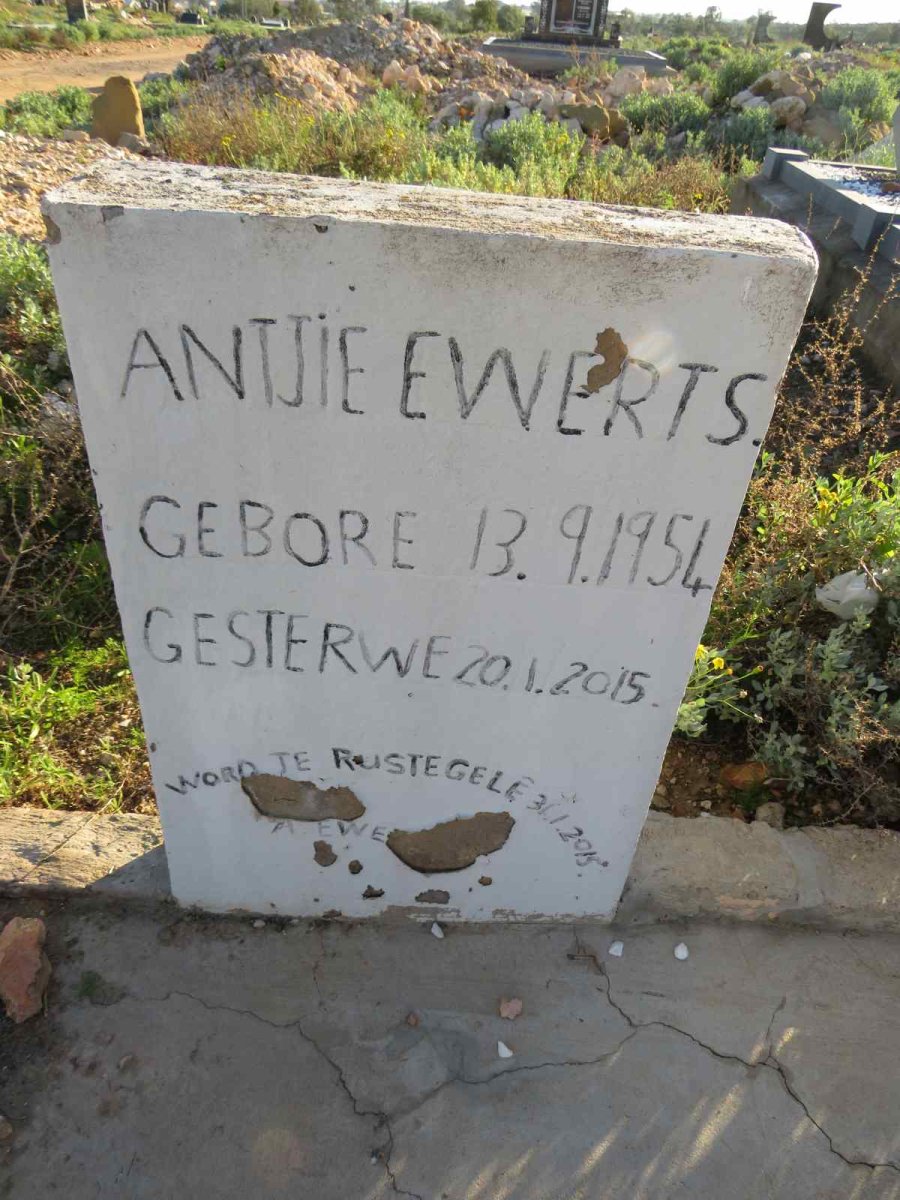 ANTJIE EWERTS.
GEBORE 13.9.1954
GESTERWE 20.1.2015
WORD TE RUSTEGELÊ 31.1.2015.